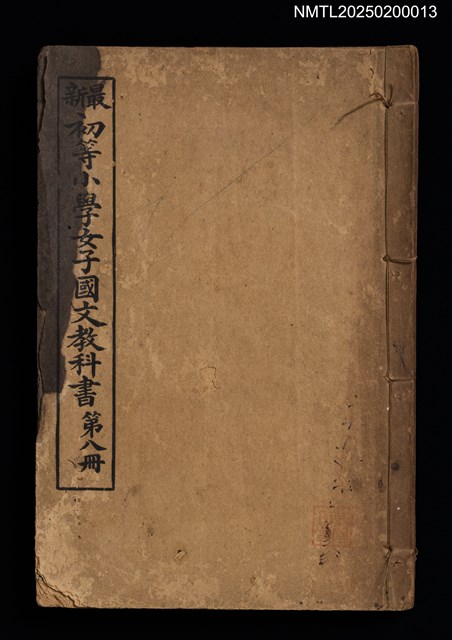 NMTL20250200013
最新初等小學女子國文教科書第八冊